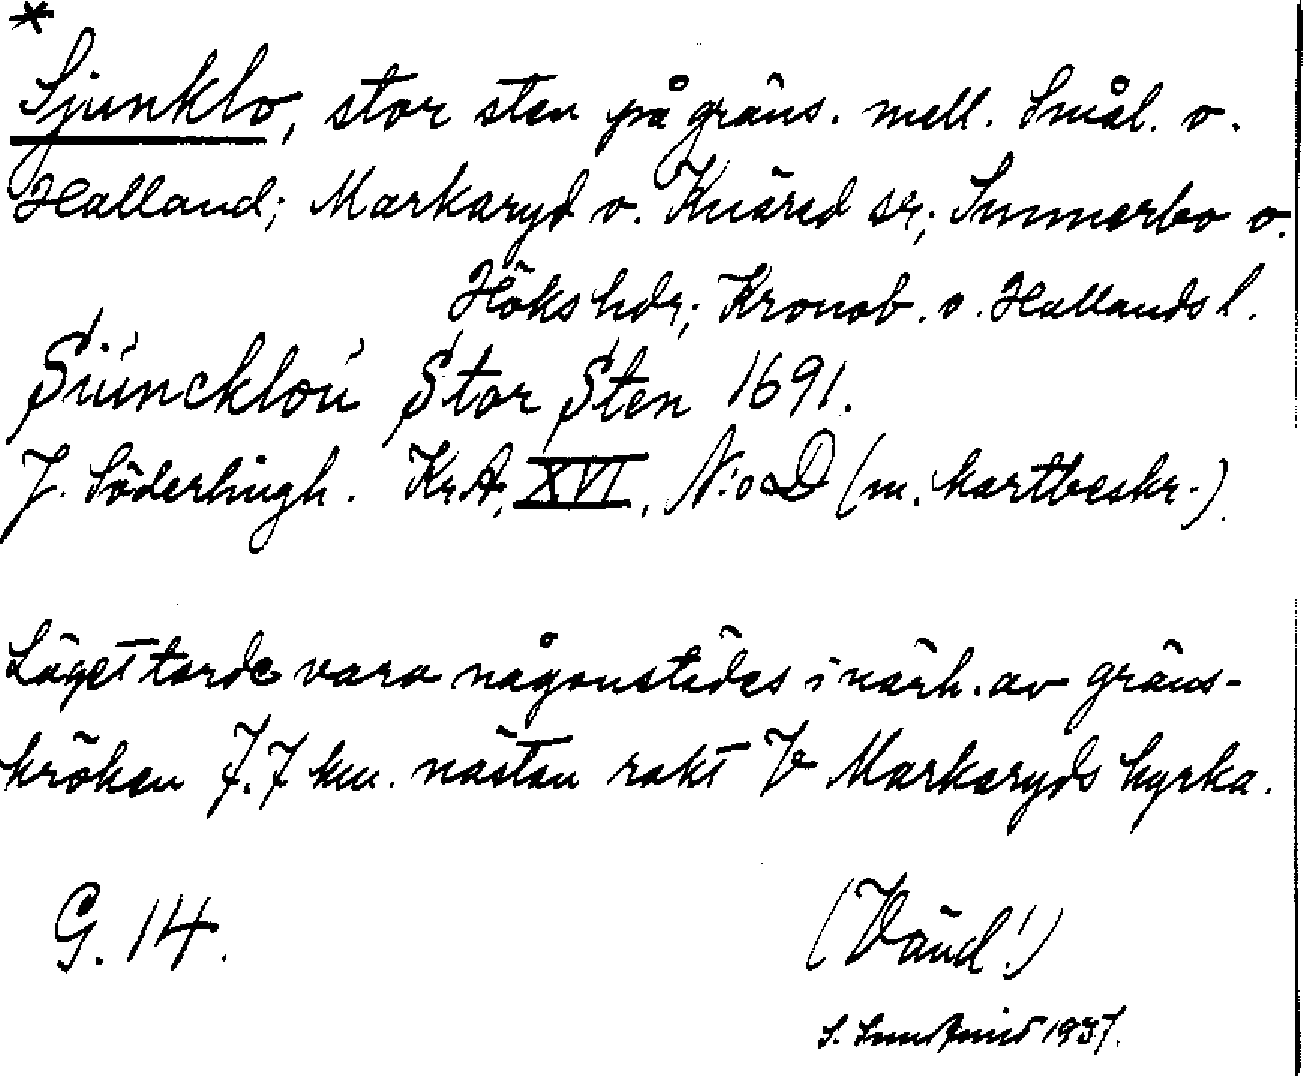 *
Sjunklo, stor sten på gräns. mell. Smål. o.
Halland; Markaryd o. Knäred sr; Sunnerbo o.
Höks hdr; Kronob. o. Hallands l.
Siúnckloú Stor Sten 1691.
J. Söderhiigh. Kr.A. XVI, N:o D (m. kartbeskr.).
Läget torde vara någonstädes i närh. av gräns-
kröken 7.7 km. nästan rakt V Markaryds kyrka.
G. 14.
(Vänd!)
S. 1937.